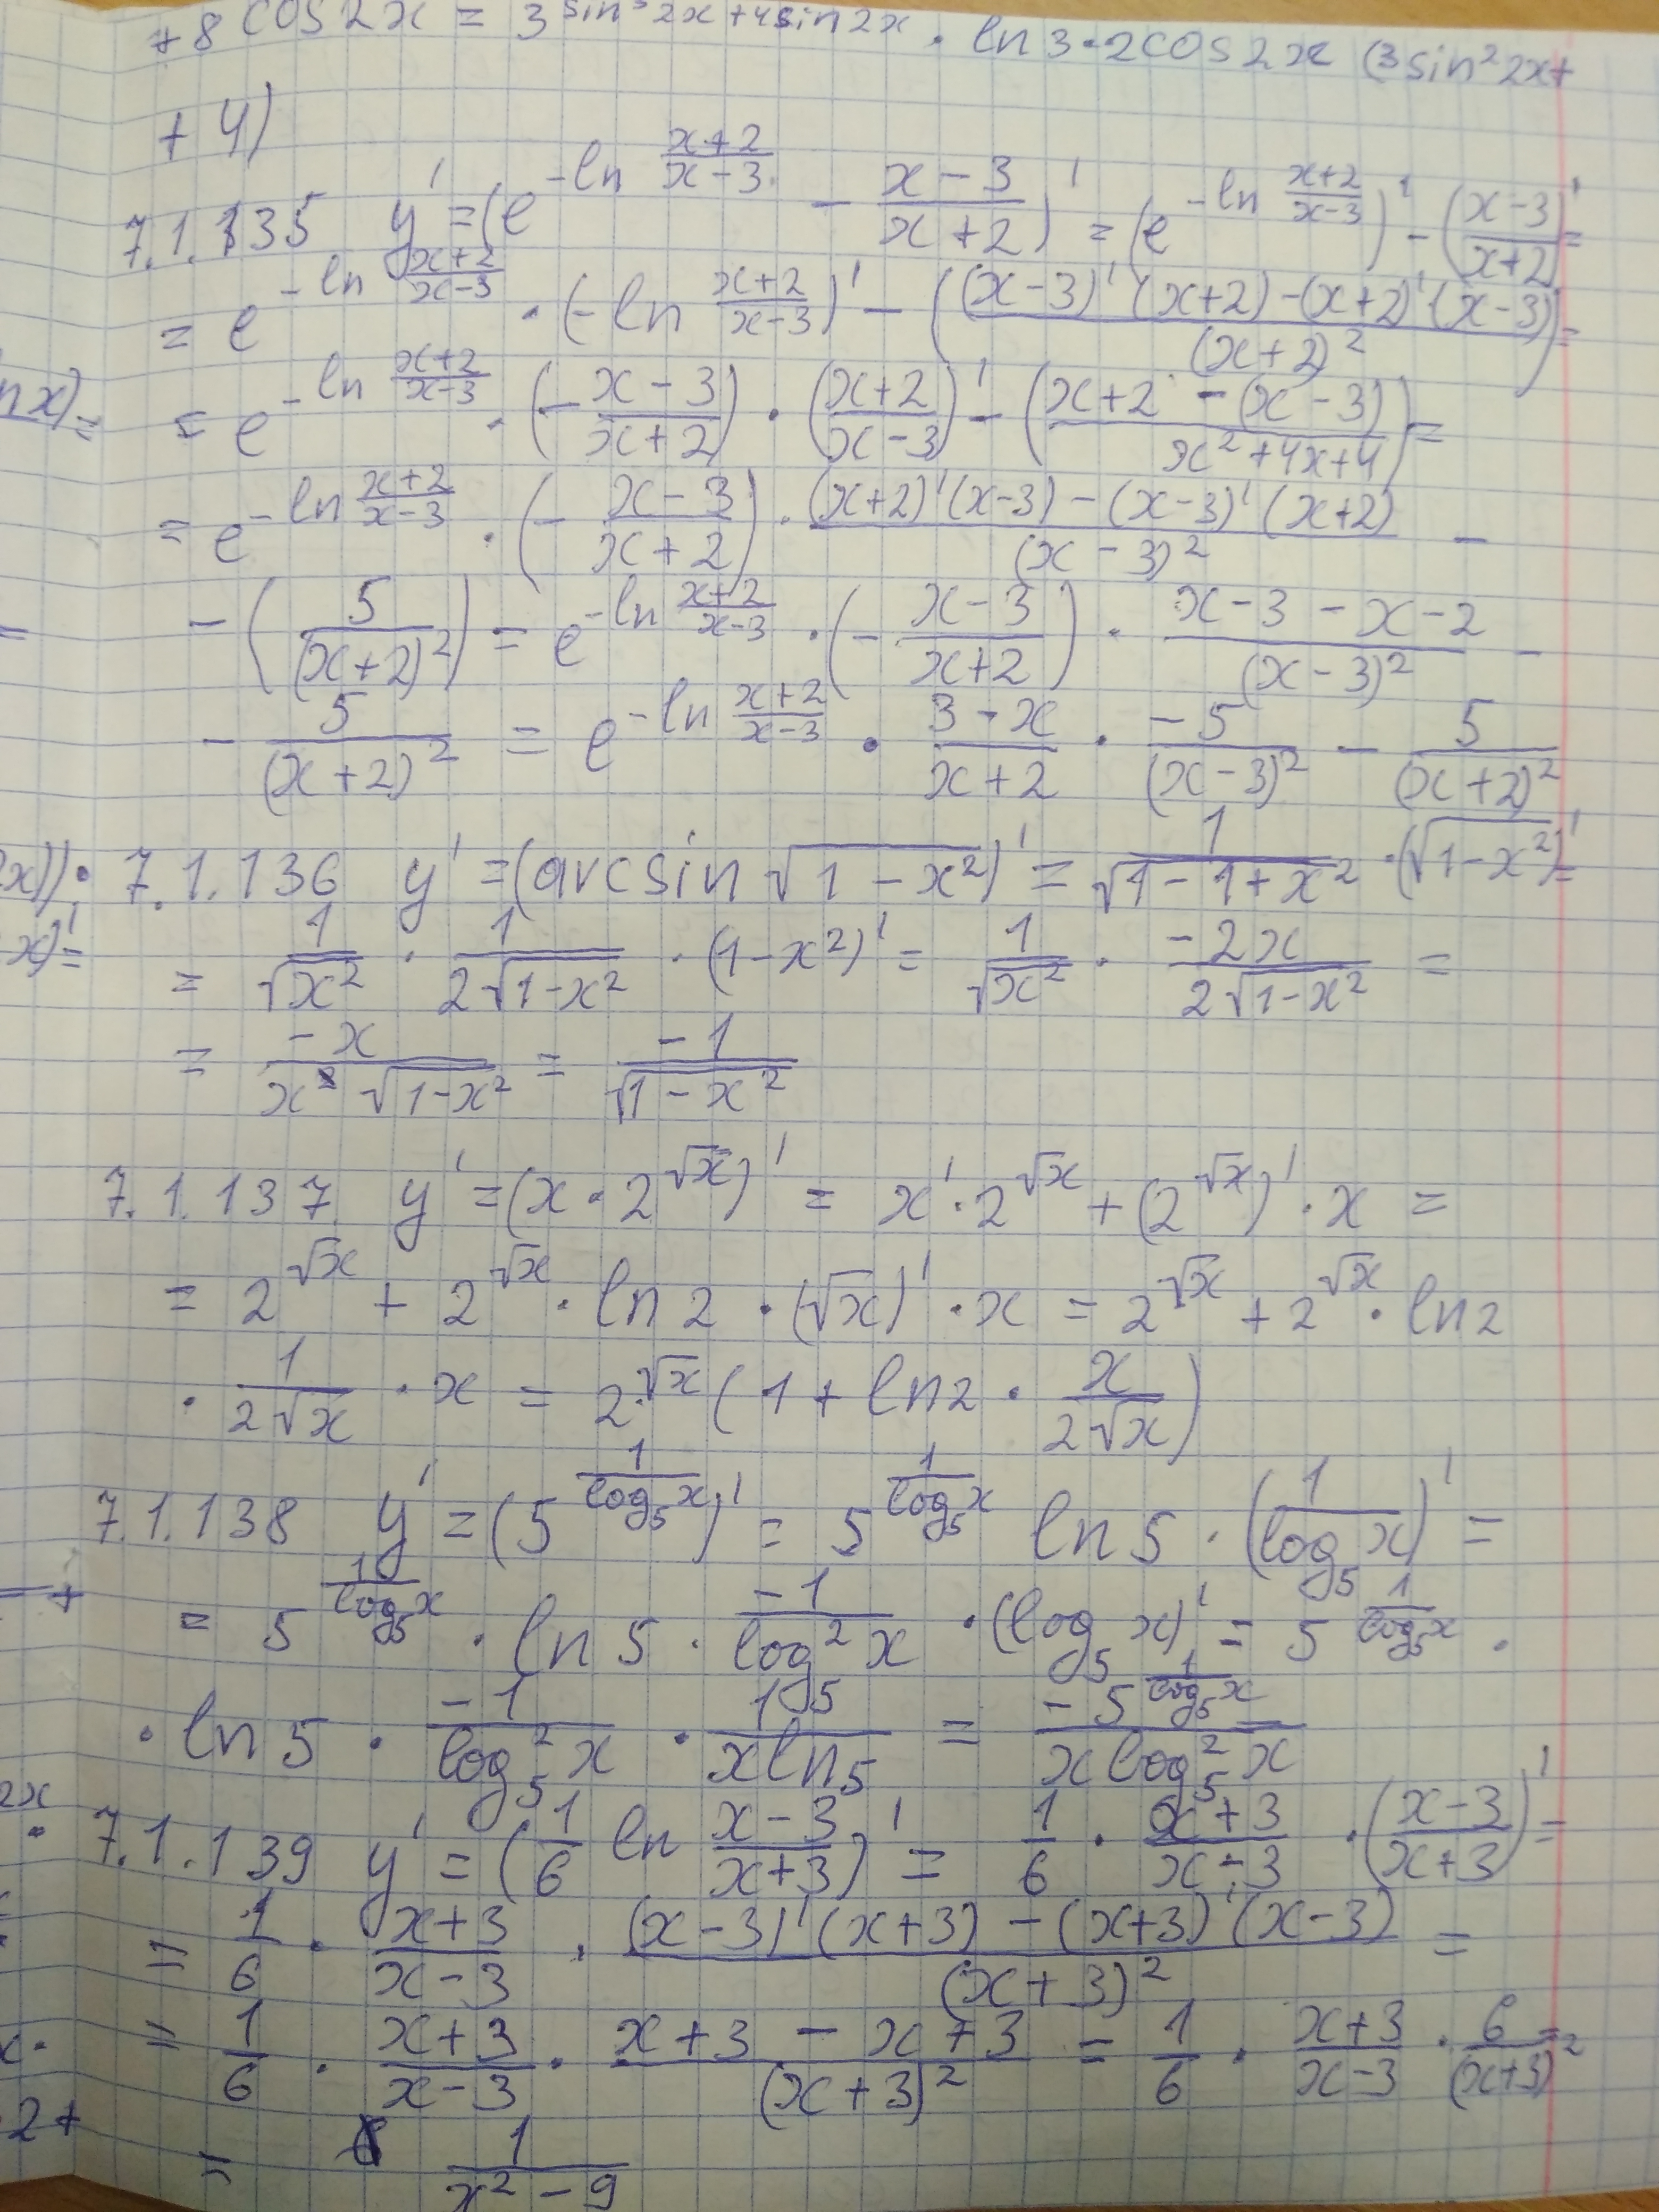 +8 cos2x = 3^{sin³2x+4sin2x} · ln3·2cos2x (3sin²2x+
+4)
7.1.135 y' = (e^{-ln \frac{x+2}{x-3}} - \frac{x-3}{x+2})' = (e^{-ln \frac{x+2}{x-3}})' - (\frac{x-3}{x+2})' =
= e^{-ln \frac{x+2}{x-3}} · (-ln \frac{x+2}{x-3})' - (\frac{(x-3)'(x+2)-(x+2)'(x-3)}{(x+2)²}) =
nx) =
= e^{-ln \frac{x+2}{x-3}} · (-\frac{x-3}{x+2}) · (\frac{x+2}{x-3})' - (\frac{x+2-(x-3)}{x²+4x+4}) =
= e^{-ln \frac{x+2}{x-3}} · (-\frac{x-3}{x+2}) · \frac{(x+2)'(x-3)-(x-3)'(x+2)}{(x-3)²} -
- (\frac{5}{(x+2)²}) = e^{-ln \frac{x+2}{x-3}} · (-\frac{x-3}{x+2}) · \frac{x-3-x-2}{(x-3)²} -
- \frac{5}{(x+2)²} = e^{-ln \frac{x+2}{x-3}} · \frac{3-x}{x+2} · \frac{-5}{(x-3)²} - \frac{5}{(x+2)²}
x))·
7.1.136 y' = (arcsin √(1-x²))' = \frac{1}{√(1-1+x²)} · (√(1-x²))' =
x)' =
= \frac{1}{√x²} · \frac{1}{2√(1-x²)} · (1-x²)' = \frac{1}{√x²} · \frac{-2x}{2√(1-x²)} =
= \frac{-x}{x √(1-x²)} = \frac{-1}{√(1-x²)}
7.1.137 y' = (x·2^{√x})' = x'·2^{√x} + (2^{√x})'·x =
= 2^{√x} + 2^{√x} · ln2 · (√x)' · x = 2^{√x} + 2^{√x} · ln2
· \frac{1}{2√x} · x = 2^{√x} (1 + ln2 · \frac{x}{2√x})
7.1.138 y' = (5^{\frac{1}{log₅x}})' = 5^{\frac{1}{log₅x}} ln5 · (\frac{1}{log₅x})' =
= 5^{\frac{1}{log₅x}} · ln5 · \frac{-1}{log₅²x} · (log₅x)' = 5^{\frac{1}{log₅x}} ·
· ln5 · \frac{-1}{log₅²x} · \frac{1}{x ln5} = \frac{-5^{\frac{1}{log₅x}}}{x log₅²x}
2x
7.1.139 y' = (\frac{1}{6} ln \frac{x-3}{x+3})' = \frac{1}{6} · \frac{x+3}{x-3} · (\frac{x-3}{x+3})' =
= \frac{1}{6} · \frac{x+3}{x-3} · \frac{(x-3)'(x+3)-(x+3)'(x-3)}{(x+3)²} =
x·
= \frac{1}{6} · \frac{x+3}{x-3} · \frac{x+3-x+3}{(x+3)²} = \frac{1}{6} · \frac{x+3}{x-3} · \frac{6}{(x+3)²} =
2+
= \frac{1}{x²-9}